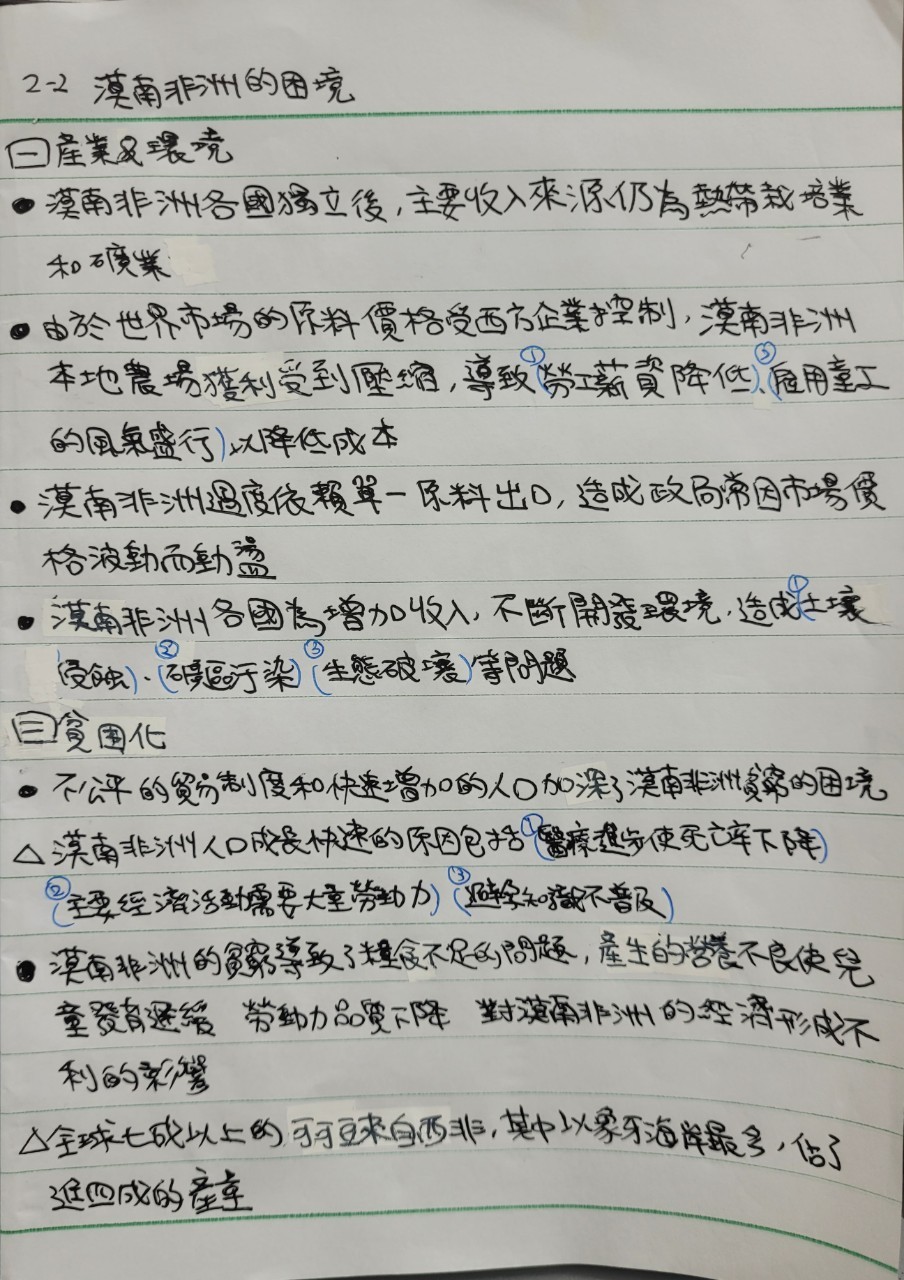 2-2 漠南非洲的困境
一產業&環境
● 漠南非洲各國獨立後,主要收入來源仍為熱帶栽培業
和礦業
● 由於世界市場的原料價格受西方企業控制,漠南非洲
本地農場獲利受到壓縮,導致①(勞工薪資降低)、②(雇用童工
的風氣盛行)以降低成本
● 漠南非洲過度依賴單一原料出口,造成政局常因市場價
格波動而動盪
● 漠南非洲各國為增加收入,不斷開發環境,造成①(土壤
侵蝕)、②(礦區汙染)③(生態破壞)等問題
三貧困化
● 不公平的貿易制度和快速增加的人口加深了漠南非洲貧窮的困境
△ 漠南非洲人口成長快速的原因包括①(醫療進步使死亡率下降)
②(主要經濟活動需要大量勞動力)③(避孕知識不普及)
● 漠南非洲的貧窮導致了糧食不足的問題,產生的營養不良使兒
童發育遲緩 勞動力品質下降 對漠南非洲的經濟形成不
利的影響
△ 全球七成以上的可可豆來自西非,其中以象牙海岸最多,佔了
近四成的產量